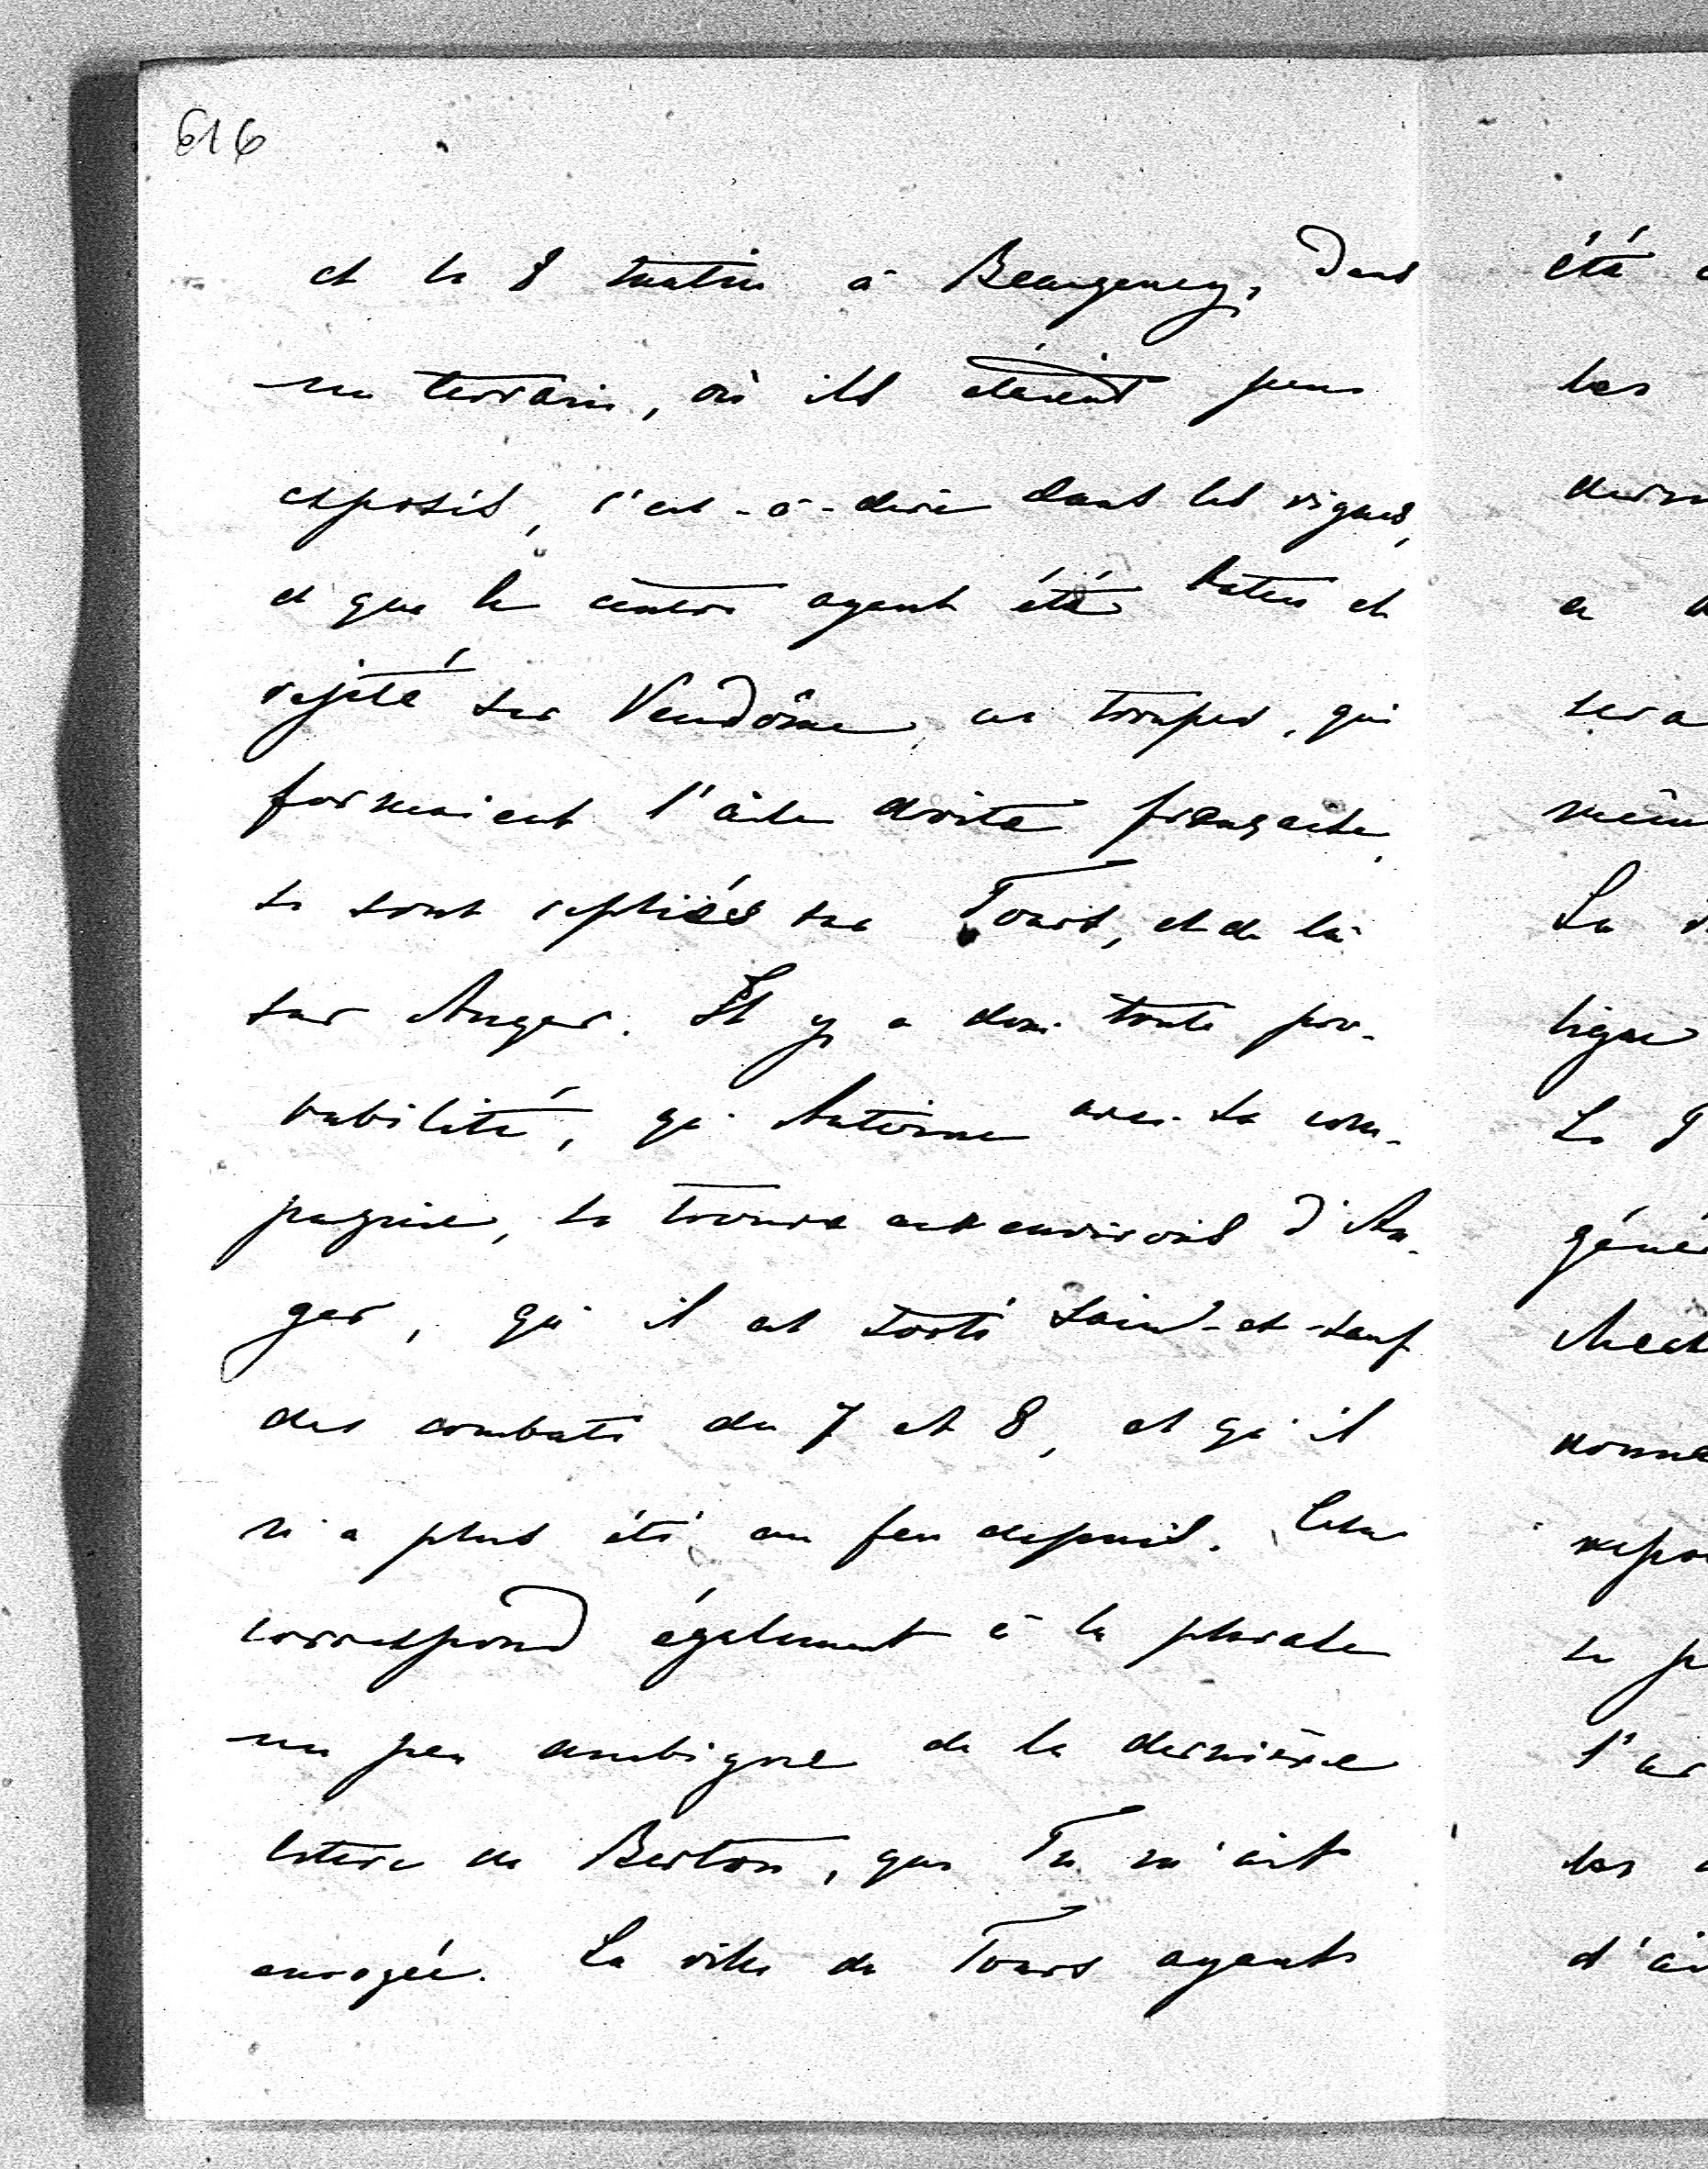 616
et le 8 matin à Beaugency, dans
un terrain, où ils étaient peu
exposés, c'est-à-dire dans les vignes,
et que le centre ayant été battu et
rejeté sur Vendôme, ces troupes, qui
formaient l'aile droite française,
se sont repliées sur Tours, et de là
sur Anger. Il y a donc toute pro-
babilité, qu'Antoine avec sa com-
pagnie, se trouve aux environs d'An-
ger, qu'il est sorti sain-et-sauf
des combats du 7 et 8, et qu'il
n'a plus été au feu depuis. Cela
correspond également à la phrase
un peu ambigue de la dernière
lettre de Berton, que Tu m'as
envoyée. La ville de Tours ayant
été
les
a
sera
même
La
ligne
Le
géné
nomme
se
les
d'